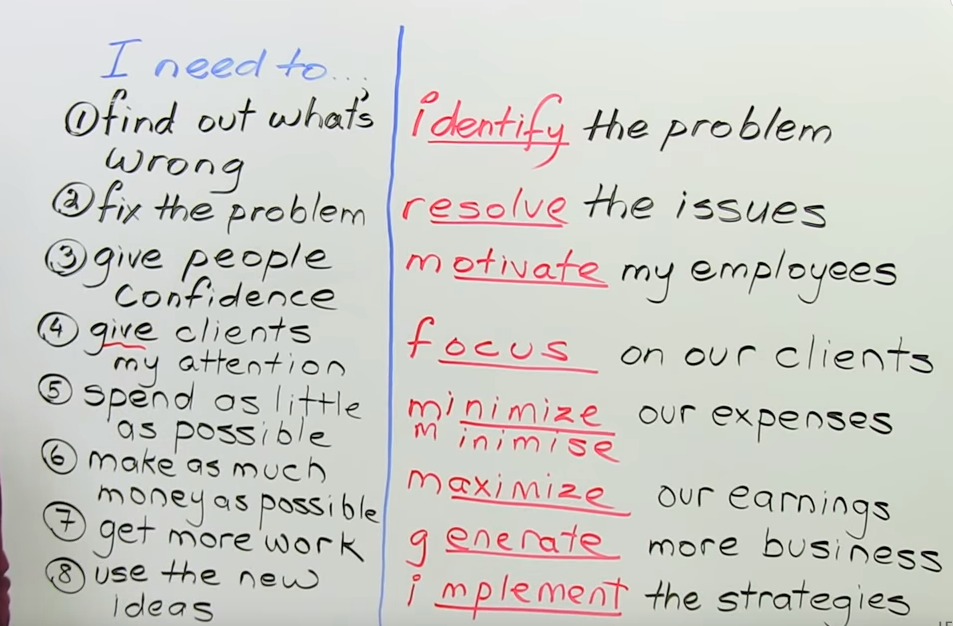 I need to...
① find out what's
wrong
② fix the problem
③ give people
confidence
④ give clients
my attention
⑤ spend as little
as possible
⑥ make as much
money as possible
⑦ get more work
⑧ use the new
ideas
identify the problem
resolve the issues
motivate my employees
focus on our clients
minimize our expenses
minimise
maximize our earnings
generate more business
implement the strategies